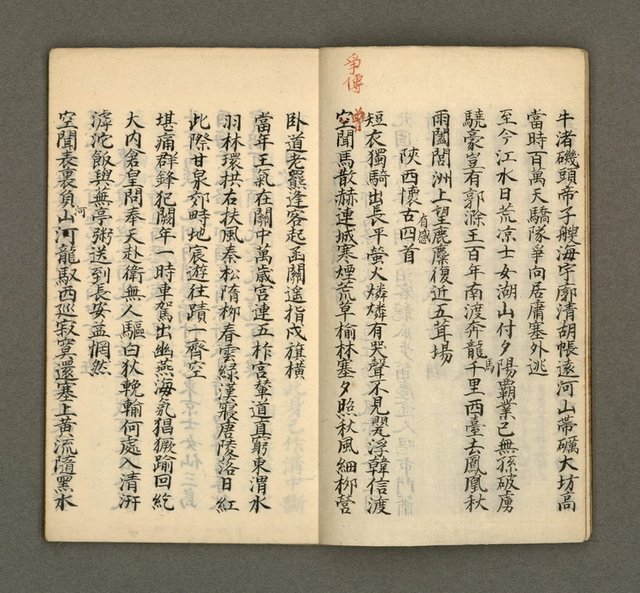 牛渚磯頭帝子艘海宇廓清胡帳遠河山帶礪大坊高
當時百萬天驕隊爭向居庸塞外逃
至今江水日荒凉士女湖山付夕陽霸業已無孫破虜
驍豪豈有郭滁王百年南渡奔龍千里西臺去鳳凰秋
馬
雨闔閭洲上望鹿麋復近五茸場
陝西懷古四首
有感
短衣獨騎出長平螢火燐燐有哭聲不見甖浮韓信渡
空聞馬散赫連城寒煙荒草榆林塞夕照秋風細柳營
爭傳
卧道老羆逢客起函關遙指戍旗橫
當年王氣在關中萬歲宮連五柞宮輦道直窮東渭水
羽林環拱右扶風秦松隋柳春雲綠漢寢唐陵落日紅
此際甘泉郊畤地宸遊往蹟一齊空
堪痛群鋒犯闕年一時車駕出幽燕海氛猖獗踰回紇
大內倉皇問奉天赴衛無人驅白狄輓輸何處入清汧
滹沱飯與無亭粥送到長安益惘然
空聞表裏負山河龍馭西廵寂寞還塞上黃流隨黑水
河